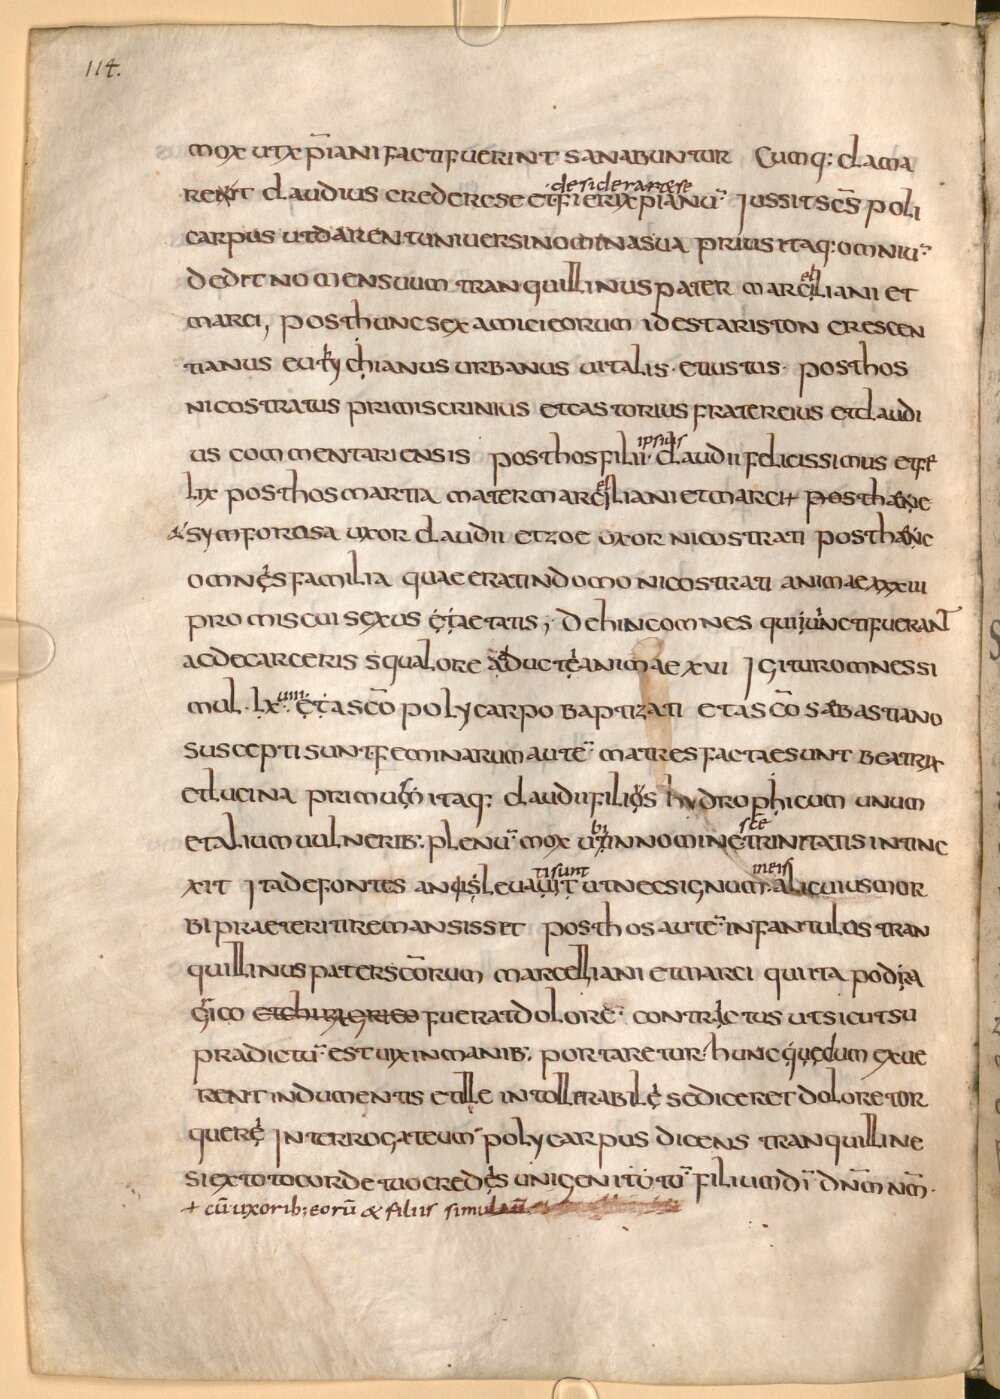 114.
mox ut xp̄iani facti fuerint sanabuntur Cumq: clama
rent claudius crederese et fieri xpianū Jussit scs̄ poli
desiderare se
carpus ut darent universi nomina sua prius itaq: omniū
dedit nomen suum tranquillinus pater marcelliani et
marci, post hunc sex amici eorum id est ariston crescen
tianus eutychianus urbanus vitalis · et iustus · post hos
nicostratus primiscrinius et castorius frater eius et claudi
ipsius
us commentariensis post hos filii claudii felicissimus et fe
lix post hos martia mater marcelliani et marci + post hanc
& symforosa uxor claudii et zoe uxor nicostrati post hanc
omnes familia quae erat in domo nicostrati animae xxxiii
promiscui sexus et aetatis; dehinc omnes qui iuncti fuerant
ac de carceris squalore aducte animae xvi Igitur omnes si
mul · lx um et a sc̄o polycarpo baptizati et a sc̄o sabastiano
suscepti sunt feminarum autē matres factae sunt beatrix
et lucina primum itaq: claudii filios hydrophicum unum
et alium vulnerib: plenū mox ubi in nomine sce trinitatis intinc
tisunt meis
xit Ita de fontes levavit ut nec signum alicuius mor
bi praeteriti remansisset post hos autē infantulos tran
quillinus pater sc̄orum marcelliani et marci qui ita podra
gico et chiragrico fuerat dolorē contractus ut sicut su
pra dictū est vix in manib: portaretur · hunc quedum exue
rent indumentis et ille intollerabile se diceret dolore tor
quere Interrogat eum polycarpus dicens tranquilline
si ex toto corde tuo credes unigenitū tū filium dī dn̄m nm̄ ·
+ cū uxorib; eorū & filiis simul